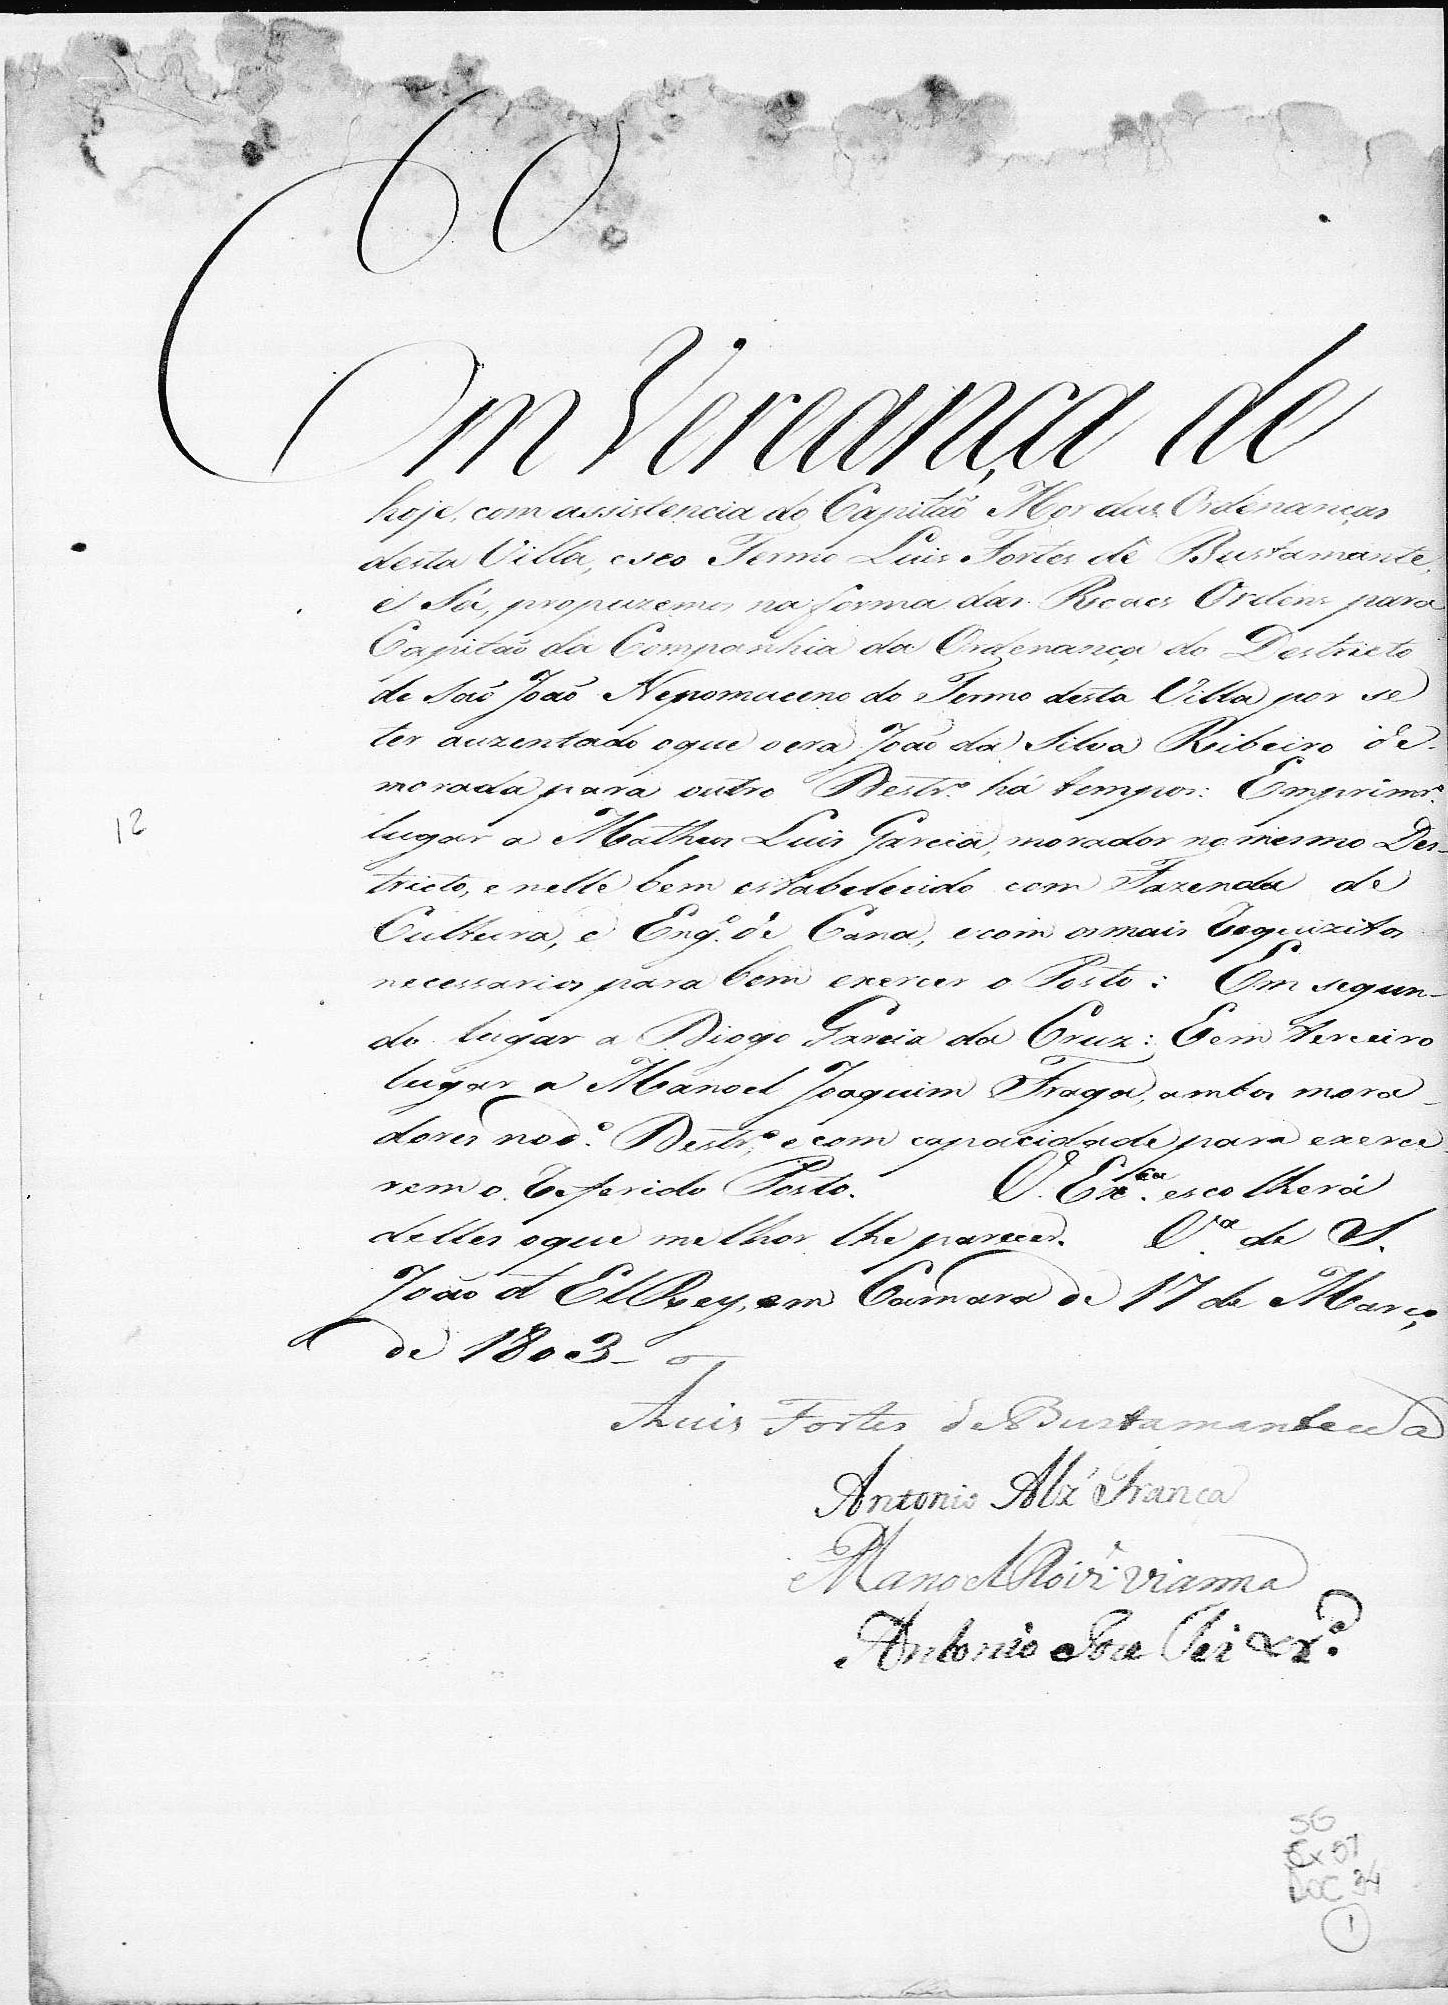 Em Vereança de
hoje, com assistencia do Capitão Mor das Ordenanças
desta Villa, e seo Termo Luis Fortes de Bustamante,
e Sá, propuzemos na forma das Reaes Ordens para
Capitão da Companhia da Ordenança do Destricto
de São João Nepomuceno do Termo desta Villa por se
ter auzentado o que o era João da Silva Ribeiro de
morada para outro Destr.º há tempos: Em prim.º
lugar a Matheus Luis Garcia, morador no mesmo Des-
tricto, e nelle bem estabelecido com Fazenda de
Cultura, e Eng.º de Cana, e com os mais requizitos
necessarios para bem exercer o Posto: Em segun-
do lugar a Diogo Garcia da Cruz: E em terceiro
lugar a Manoel Joaquim Fraga, ambos mora-
dores no d.º Destr.º e com capacidade para exerce-
rem o referido Posto. V. Ex.cia escolherá
delles o que melhor lhe parecer. V.ª de S.
João d'El Rey, em Camara de 17 de Março
de 1803-
Luis Fortes de Bustamante e Sá
Antonio Alz' França
Manoel Roiz' Vianna
Antonio Jose Teixr.ª
12
SG
Cx 57
DOC 34
1